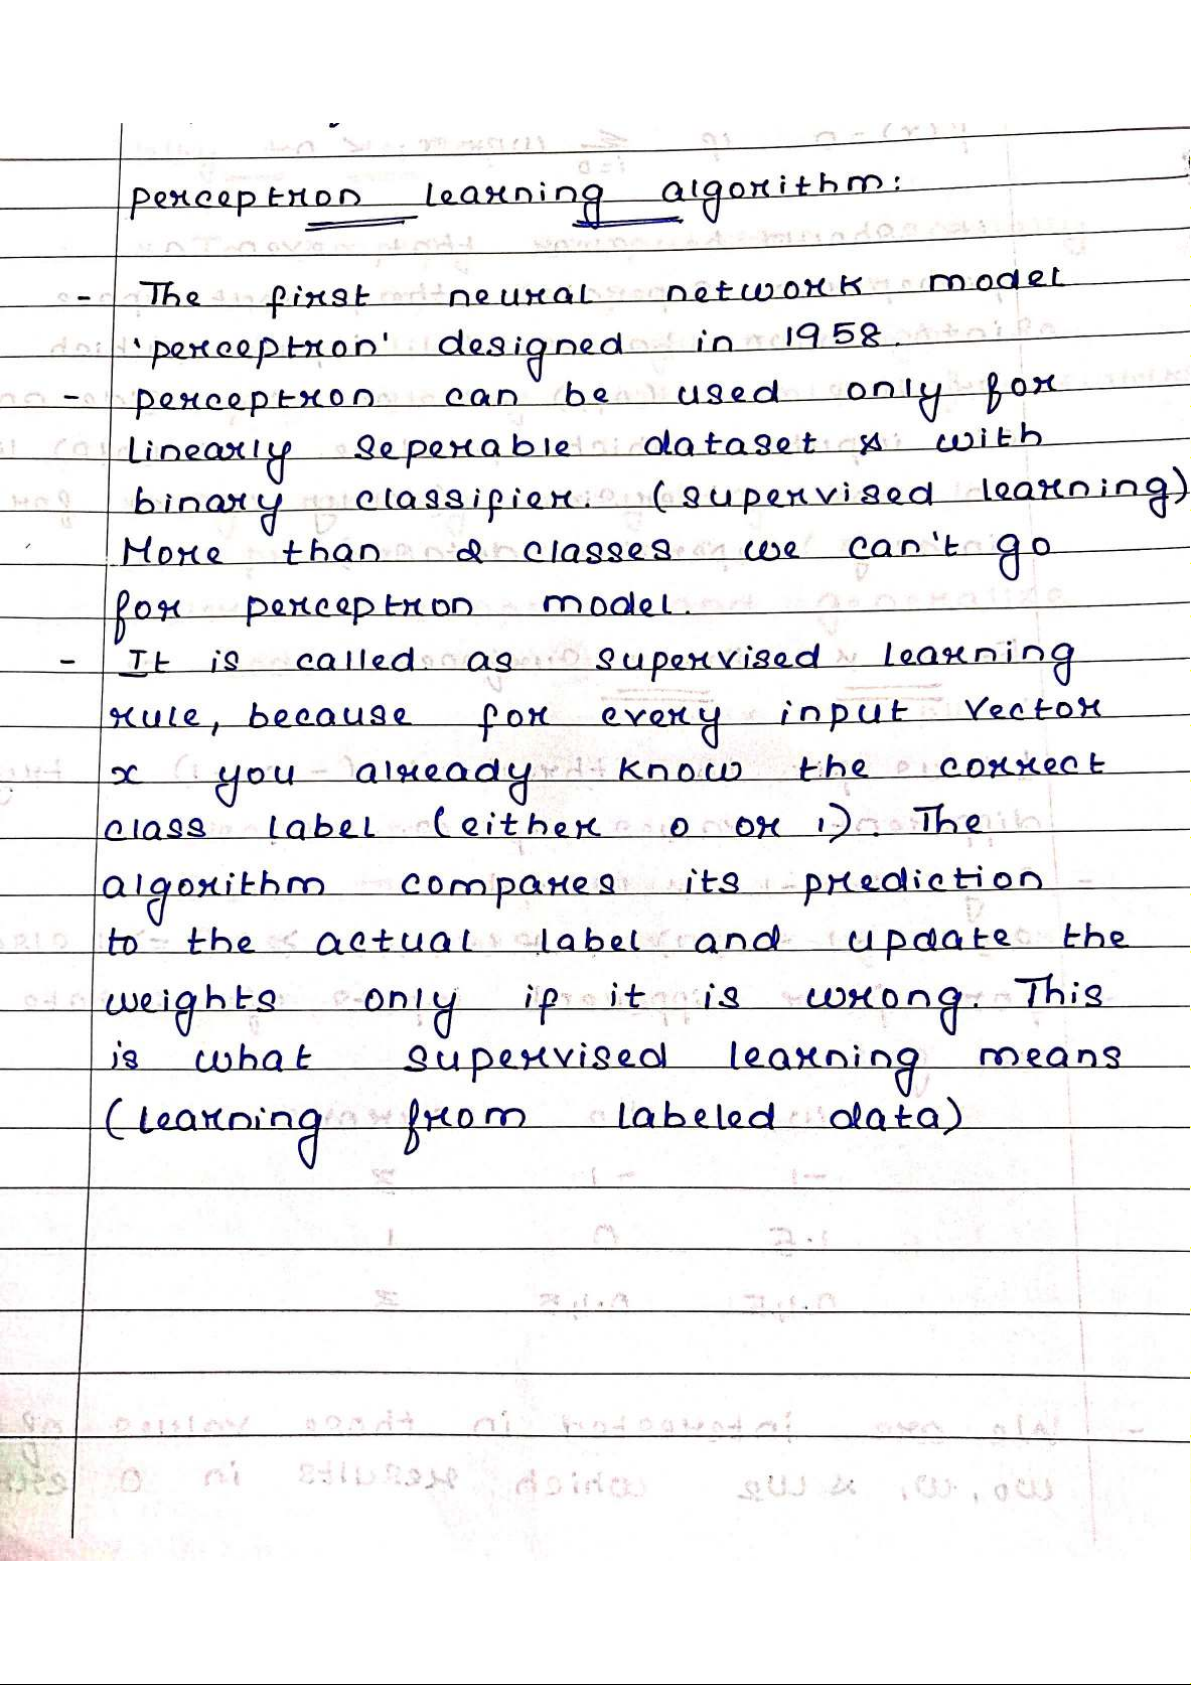 Perceptron learning algorithm:
- The first neural network model
'perceptron' designed in 1958.
- perceptron can be used only for
linearly seperable dataset & with
binary classifier. (supervised learning)
More than 2 classes we can't go
for perceptron model.
- It is called as supervised learning
rule, because for every input vector
x you already know the correct
class label (either 0 or 1). The
algorithm compares its prediction
to the actual label and update the
weights only if it is wrong. This
is what supervised learning means
(learning from labeled data)